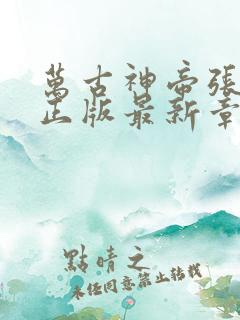 萬古神帝張
正版最新章
點晴之
未經同意禁止轉載